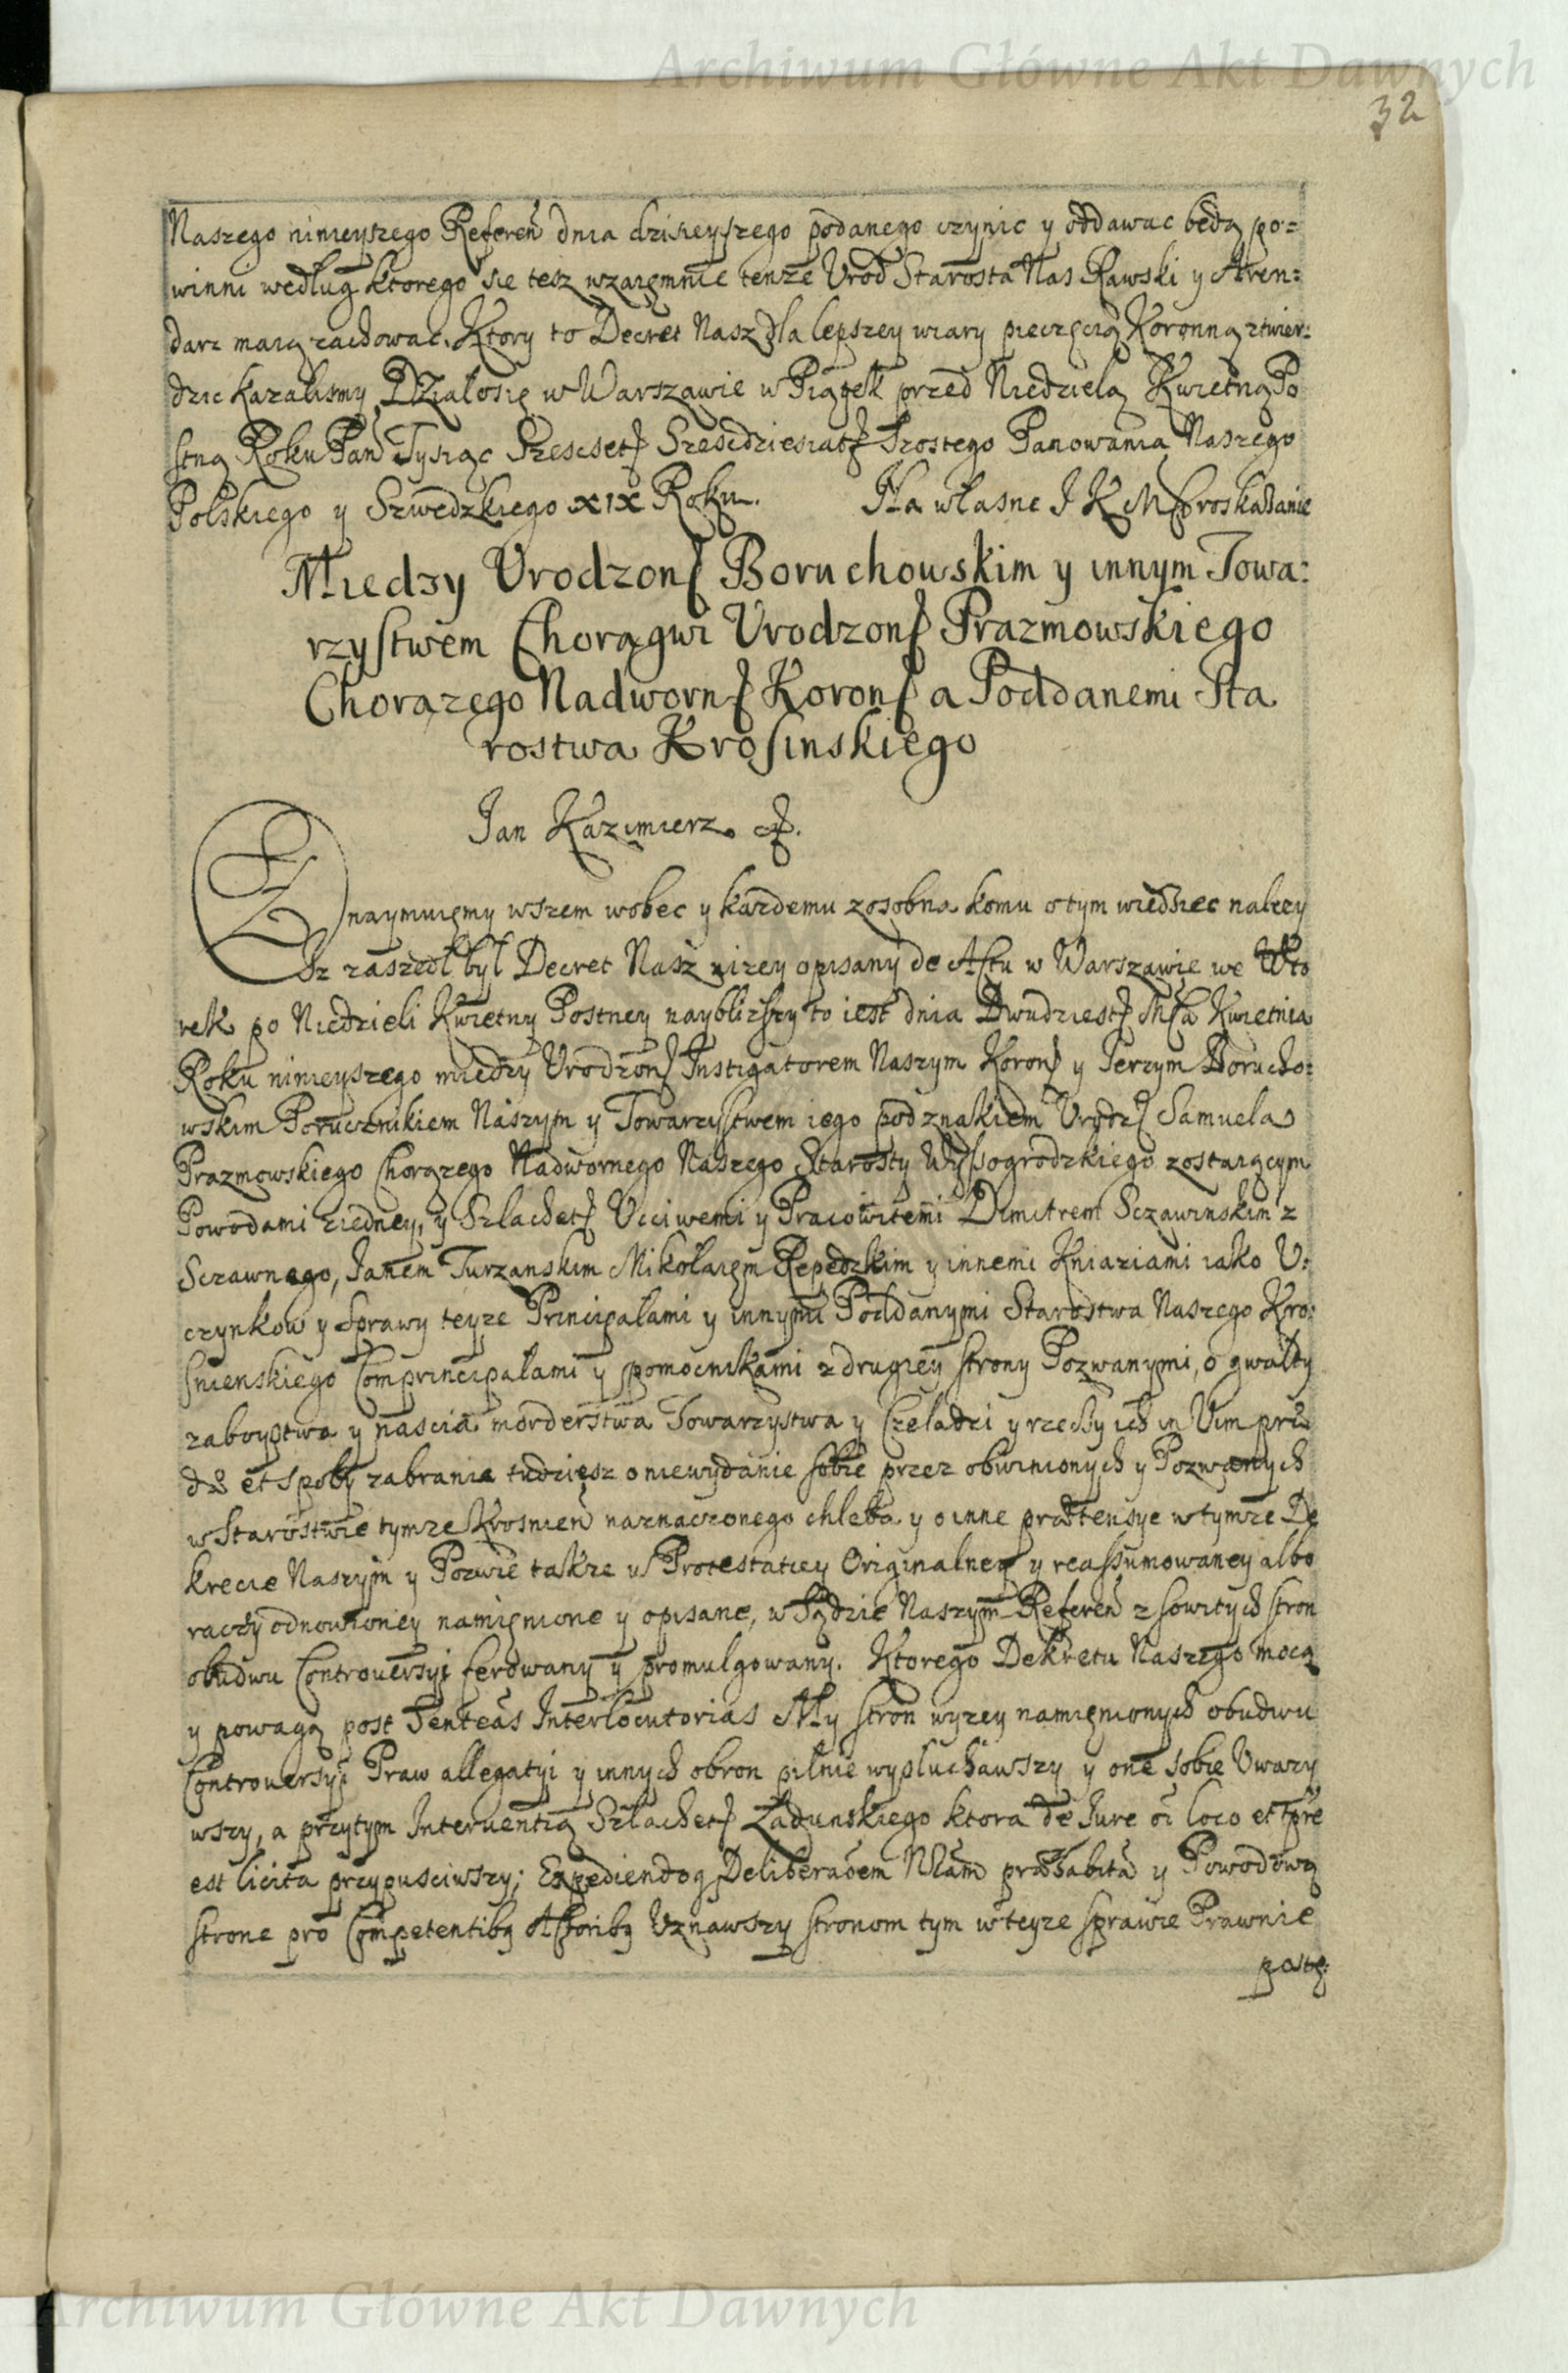 Archiwum Główne Akt Dawnych
32
Naszego ninieyszego Referen dnia dzisieyszego podanego czynic y oddawac będą po=
winni według ktorego się tesz wzaięmnie tenze Urod Starosta Nas Rawski y Aren=
darz maią zachowac. Ktory to Decret Nasz dla lepszey wiary pieczęcią Koronną ztwier=
dzic kazalismy Działosię w Warszawie w Piątek przed Niedzielą Kwietną Po
stną Roku Pan Tysiąc Szescset Szescdziesiat Szostego Panowania Naszego
Polskiego y Szwedzkiego XIX Roku. Na własne J K M roskazanie
Miedzy Vrodzon Boruchowskim y innym Towa=
rzystwem Chorągwi Vrodzon Prazmowskiego
Chorązego Nadworn Koron a Poddanemi Sta
rostwa Krosinskiego
Jan Kazimierz. etc.
Znaymuięmy wszem wobec y kazdemu zosobna komu otym wiedziec nalezy
Iz zaszedł był Decret Nasz nizey opisany de Actu w Warszawie we Wto
rek po Niedzieli Kwietny Postney nayblizszy to iest dnia Dwudziest Msca Kwietnia
Roku ninieyszego między Vrodzon Instigatorem Naszym Koron y Jerzym Borucho=
wskim Porucznikiem Naszym y Towarzystwem iego pod znakiem Vrodz Samuela
Prazmowskiego Chorązego Nadwornego Naszego Starosty Wyssogrodzkiego zostaiącym
Powodami ziedney, y Szlachet Vcciwemi y Pracowitemi Dimitrem Sczawinskim z
Sczawnego, Janem Turzanskim Mikołaięm Repedzkim y innemi Kniaziami iako V=
czynkow y Sprawy teyze Principałami y innymi Poddanymi Starostwa Naszego Kro=
snienskiego Comprincipałami y pomocnikami z drugiey strony Pozwanymi, o gwałty
zaboystwa y nascia morderstwa Towarzystwa y Czeladzi y rzeczy ich in Vim præ
dæ et spoly zabrania tudziesz o niewydanie sobie przez obwinionych y Pozwanych
w Starostwie tymze Krosnien naznaczonego chleba y o inne prætensye w tymze De
krecie Naszym y Pozwie takze w Protestatiey Originalney y reassumowaney albo
raczy odnowioney namięnione y opisane, w Sądzie Naszym Referen z sowitych stron
obudwu Controversyi ferowany y promulgowany. Ktorego Dekretu Naszego mocą
y powagą post Senteas Interlocutorias My stron wyzey namięnionych obudwu
Controversyi Praw allegatyi y innych obron pilnie wysłuchawszy y one sobie Vwazy
wszy, a przytym Interventią Szlachet Zadunskiego ktora de Jure oi loco et tpre
est licita przypusciwszy; Expediendoq Deliberaoem Nram præhabita y Powodową
strone pro Competentibq Actoribq Vznawszy stronom tym w teyze sprawie Prawnie
postę:
Archiwum Główne Akt Dawnych